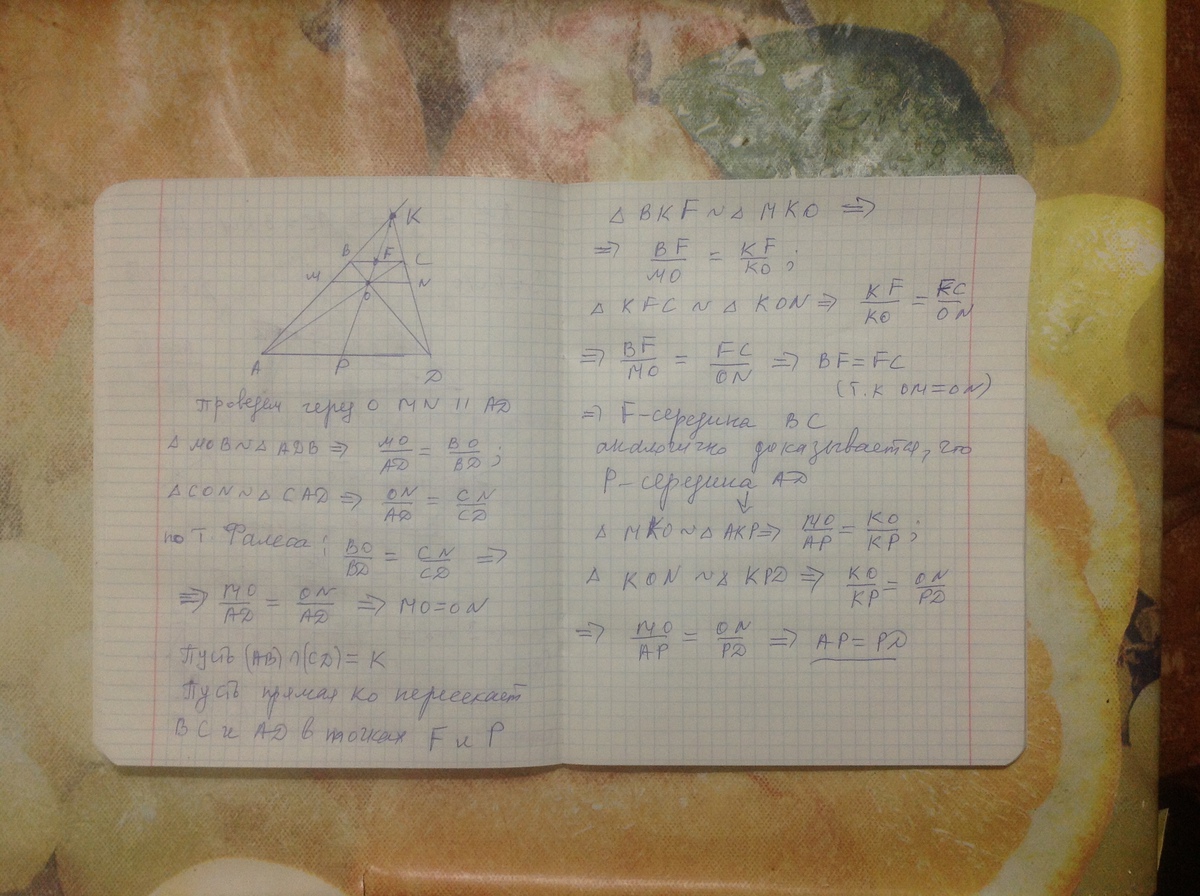 K
B F C
M O N
A P D
Проведем через O MN || AD
△ MOB ~ △ ADB ⇒ MO/AD = BO/BD ;
△ CON ~ △ CAD ⇒ ON/AD = CN/CD
по Т. Фалеса: BO/BD = CN/CD ⇒
⇒ MO/AD = ON/AD ⇒ MO=ON
Пусть (AB)∩(CD)= K
Пусть прямая KO пересекает
BC и AD в точках F и P
△ BKF ~ △ MKO ⇒
⇒ BF/MO = KF/KO ;
△ KFC ~ △ KON ⇒ KF/KO = FC/ON
⇒ BF/MO = FC/ON ⇒ BF=FC
(Т.к OM=ON)
⇒ F-середина BC
аналогично доказывается, что
P-середина AD
↓
△ MKO ~ △ AKP ⇒ MO/AP = KO/KP ;
△ KON ~ △ KPD ⇒ KO/KP = ON/PD
⇒ MO/AP = ON/PD ⇒ AP=PD